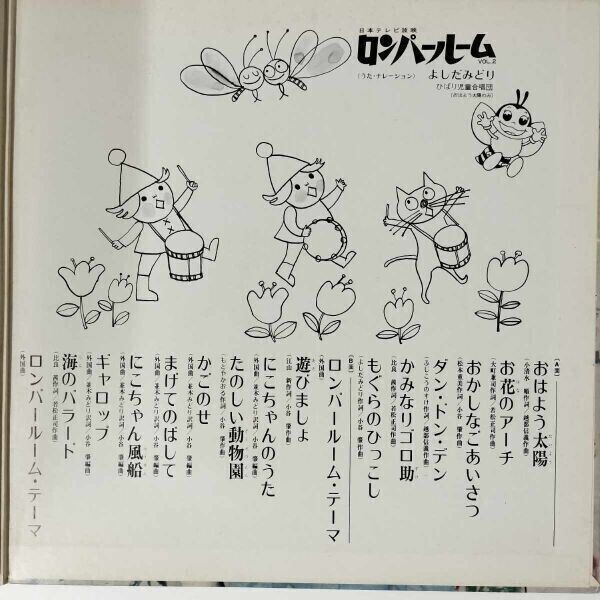 日本テレビ放映
ロンパールーム
VOL.2
(うた・ナレーション) よしだみどり
ひばり児童合唱団
(おはよう太陽のみ)
[A面]
おはよう太陽
お花のアーチ
(大町兼司作詞/若松正司作曲)
おかしなこあいさつ
(松本亜美作詞/小谷 肇作曲)
ダン・ドン・デン
(ふじこうのすけ作詞/越部信義作曲)
かみなりゴロ助
(比良 義作詞/若松正司作曲)
もぐらのひっこし
(よしだみどり作詞/小谷 肇作曲)
[B面]
ロンパールーム・テーマ
(外国曲)
遊びましょ
(江山 新作詞/小谷 肇作曲)
にこちゃんのうた
たのしい動物園
(もとやかおる作詞/小谷 肇作曲)
かごのせ
(外国曲/並木みどり訳詞/小谷 肇編曲)
まげてのばして
(外国曲/並木みどり訳詞/小谷 肇編曲)
にこちゃん風船
(外国曲/並木みどり訳詞/小谷 肇編曲)
ギャロップ
(外国曲/並木みどり訳詞/小谷 肇編曲)
海のバラード
(比良 義作詞/若松正司作曲)
ロンパールーム・テーマ
(外国曲)